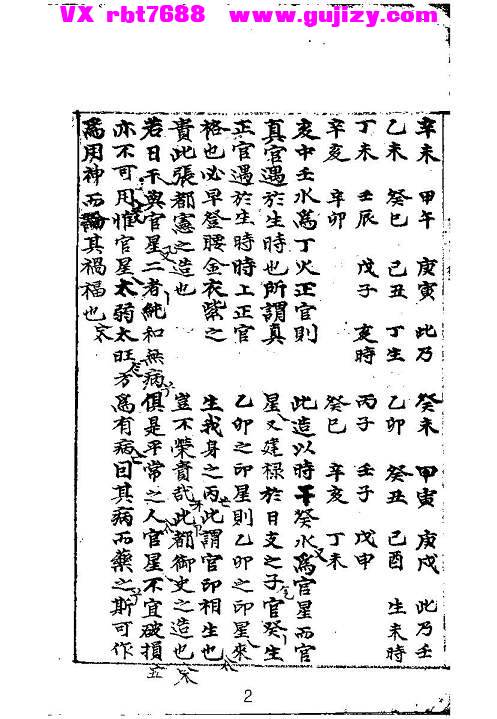 VX rbt7688 www.gujizy.com
辛未 甲午 庚寅 此乃
乙未 癸巳 己丑 丁生
丁未 壬辰 戊子 亥時
辛亥 辛卯
亥中壬水爲丁火正官則
真官遇於生時也所謂真
正官遇於生時時上正官
格也必早登腰金衣紫之
貴此張都憲之造也
癸未 甲寅 庚戌 此乃壬
乙卯 癸丑 己酉 生未時
丙子 壬子 戊申
癸巳 辛亥 丁未
此造以時干癸水爲官星而官
星又建祿於日支之子官癸生
乙卯之印星則乙卯之印星來
生我身之丙此謂官印相生也
豈不榮貴哉此都御史之造也
若日干與官星二者純和無病俱是平常之人官星不宜破損
亦不可用惟官星太弱太旺方爲有病因其病而藥之斯可作
爲用神而論其禍福也
2